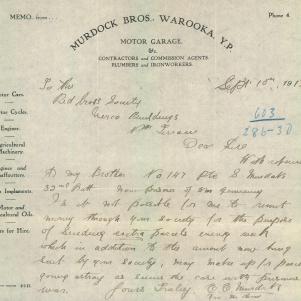 MEMO. from
Phone 4.
MURDOCK BROS., WAROOKA, Y.P.
MOTOR GARAGE.
&c.
CONTRACTORS and COMMISSION AGENTS
PLUMBERS and IRONWORKERS.
Sept 10th 191
To The
Red Cross Society
Buildings
Terrace
603
286-30
Dear Sir
With
to my Brother No 147 Pte S Murdock
32nd Batt Now Prisoner of War Germany
Is it not possible for me to remit
money through your Society for the purpose
of sending extra parcels every week
which in addition to the amount now being
sent by your Society, may make up for parcels
going astray as seems the case with prisoners
war. Yours Truly
Motor Cars.
Motor Cycles.
Engines.
Agricultural
Machinery.
Engines and
Implements.
Motor and
Agricultural Oils.
Cars for Hire.